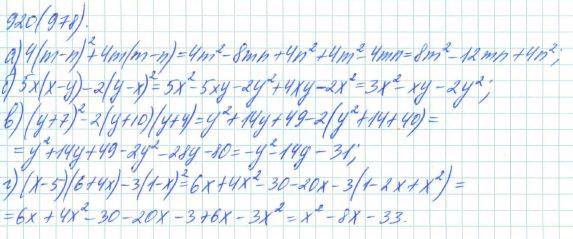 920(978).
а) 4(m-n)²+4m(m-n)=4m²-8mn+4n²+4m²-4mn=8m²-12mn+4n²;
б) 5x(x-y)-2(y-x)²=5x²-5xy-2y²+4xy-2x²=3x²-xy-2y²;
в) (y+7)²-2(y+10)(y+4)=y²+14y+49-2(y²+14+40)=
=y²+14y+49-2y²-28y-80=-y²-14y-31;
г) (x-5)(6+4x)-3(1-x)²=6x+4x²-30-20x-3(1-2x+x²)=
=6x+4x²-30-20x-3+6x-3x²=x²-8x-33.